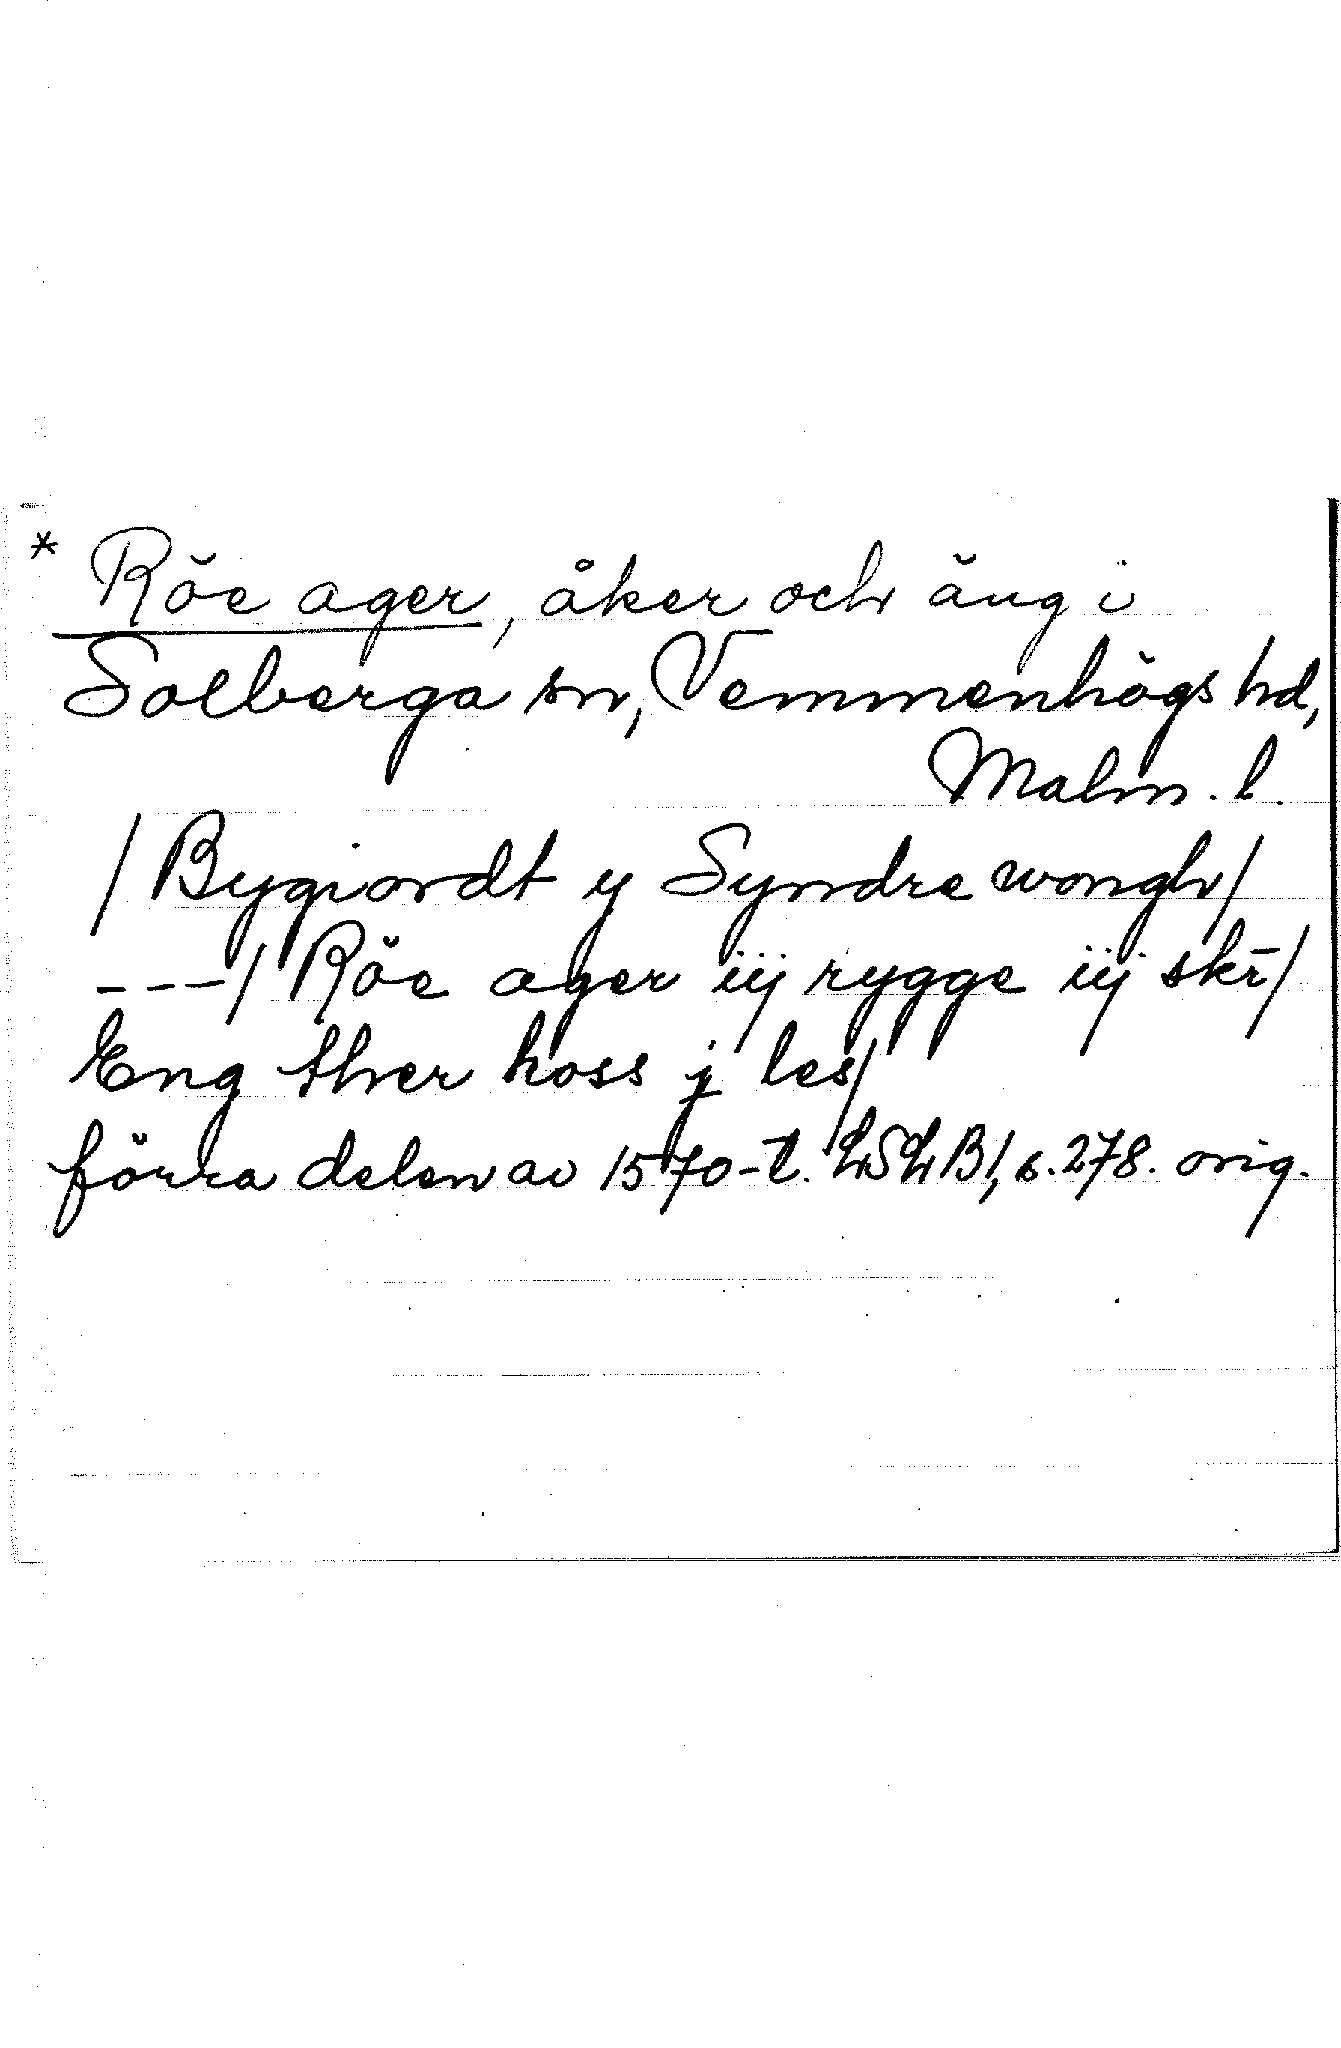 * Röe ager, åker och äng i
Solberga sn, Vemmenhögs hd,
Malm. l.
/ Bygiordt y Syndre wongh /
---/ Röe ager iij rygge iij skr̄ /
Eng ther hoss j les /
förra delen av 1570-t. LSLB1, s. 278. orig.